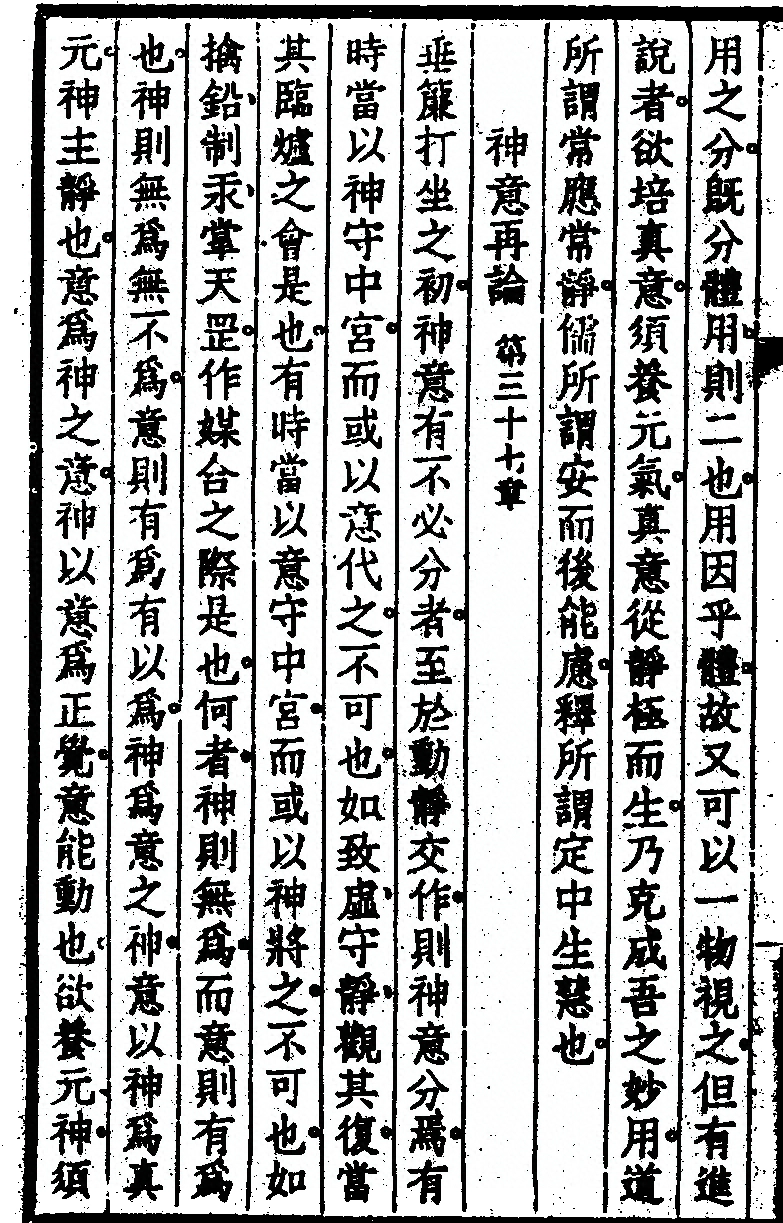 用之分。既分體用。則二也。用因乎體。故又可以一物視之。但有進
說者。欲培真意。須養元氣。真意從靜極而生。乃克成吾之妙用。道
所謂常應常靜。儒所謂安而後能慮。釋所謂定中生慧也。
神意再論 第三十七章
垂簾打坐之初。神意有不必分者。至於動靜交作。則神意分焉。有
時當以神守中宮。而或以意代之。不可也。如致虛、守靜、觀其復。當
其臨爐之會是也。有時當以意守中宮。而或以神將之。不可也。如
擒鉛、制汞、掌天罡。作媒合之際是也。何者。神則無為。而意則有為
也。神則無為無不為。意則有為有以為。神為意之神。意以神為真
元。神主靜也。意為神之意。神以意為正覺。意能動也。欲養元神。須